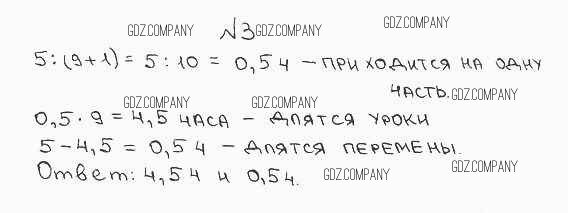 GDZ.COMPANY №3 GDZ.COMPANY GDZ.COMPANY
5:(9+1)=5:10=0,5 ч – ПРИХОДИТСЯ НА ОДНУ
ЧАСТЬ. GDZ.COMPANY
GDZ.COMPANY GDZ.COMPANY
0,5·9=4,5 ЧАСА – ДЛЯТСЯ УРОКИ
5–4,5=0,5 ч – ДЛЯТСЯ ПЕРЕМЕНЫ.
Ответ: 4,5 ч и 0,5 ч. GDZ.COMPANY GDZ.COMPANY